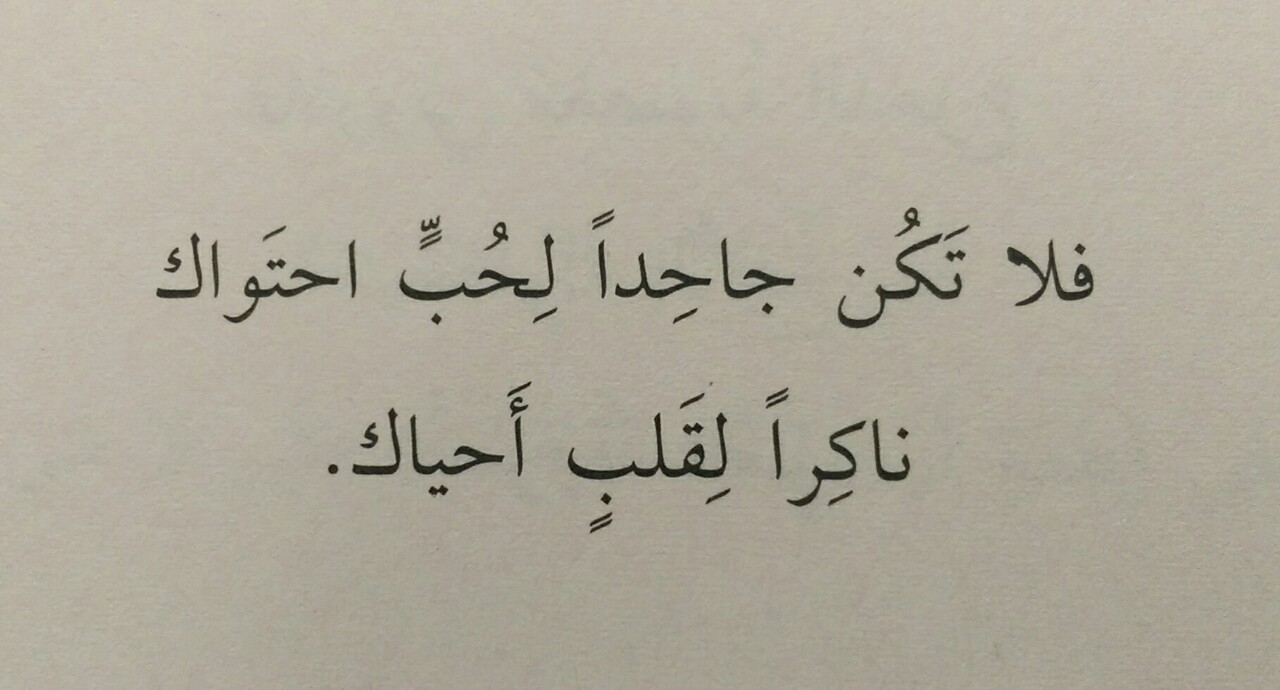 فلا تَكُن جاحِداً لِحُبٍّ احتَواك
ناكِراً لِقَلبٍ أَحياك.